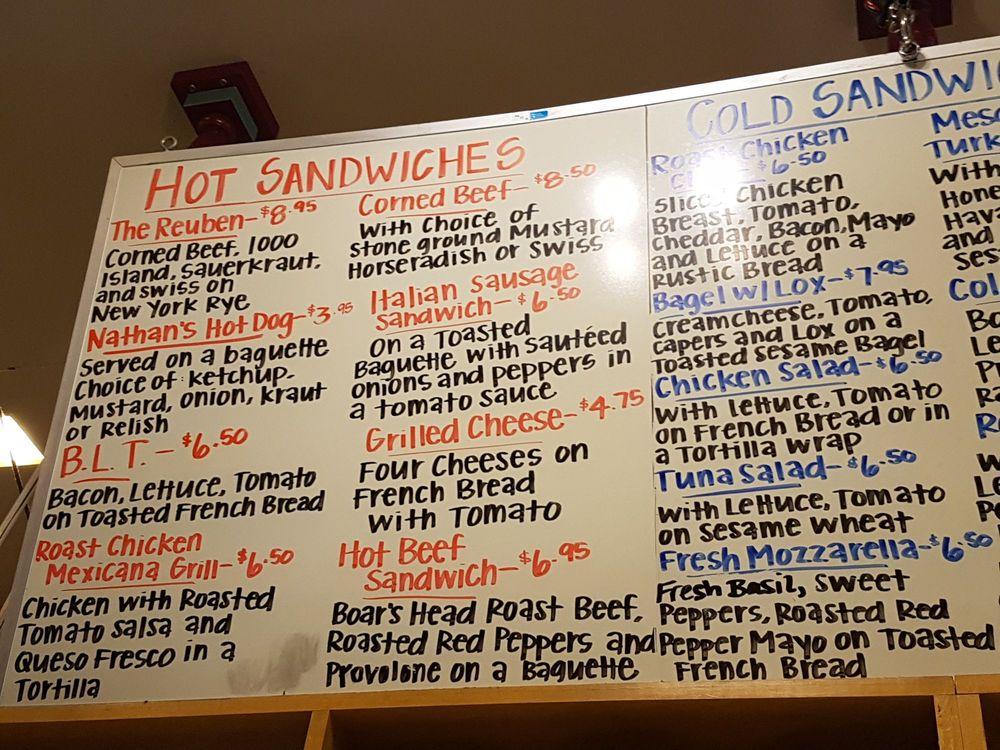 HOT SANDWICHES
The Reuben-$8.95
Corned Beef, 1000
Island, Sauerkraut,
and swiss on
New York Rye
Nathan's Hot Dog-$3.95
Served on a baguette
Choice of: ketchup.
Mustard, onion, kraut
or Relish
B.L.T.-$6.50
Bacon, Lettuce, Tomato
on Toasted French Bread
Roast Chicken
Mexicana Grill-$6.50
Chicken with Roasted
Tomato Salsa and
Queso Fresco in a
Tortilla
Corned Beef-$8.50
with Choice of
stone ground Mustard
Horseradish or Swiss
Italian Sausage
Sandwich-$6.50
on a Toasted
Baguette with Sautéed
onions and peppers in
a tomato sauce
Grilled Cheese-$4.75
Four Cheeses on
French Bread
with Tomato
Hot Beef
Sandwich-$6.95
Boar's Head Roast Beef,
Roasted Red Peppers and
Provolone on a Baguette
COLD SANDWIC
Roast Chicken
$6.50
Sliced Chicken
Breast, Tomato,
Cheddar, Bacon, Mayo
and Lettuce on a
Rustic Bread
Bagel w/ Lox-$7.95
Creamcheese, Tomato,
Capers and Lox on a
Toasted Sesame Bagel
Chicken Salad-$6.50
with Lettuce, Tomato
on French Bread or in
a Tortilla wrap
Tuna Salad-$6.50
with Lettuce, Tomato
on Sesame wheat
Fresh Mozzarella-$6.50
Fresh Basil, Sweet
Peppers, Roasted Red
Pepper Mayo on Toasted
French Bread
Mesq
Turk
With
Hone
Hava
and
Ses
Col
Ba
Le
Pr
Ro
R
W
Le
Pe